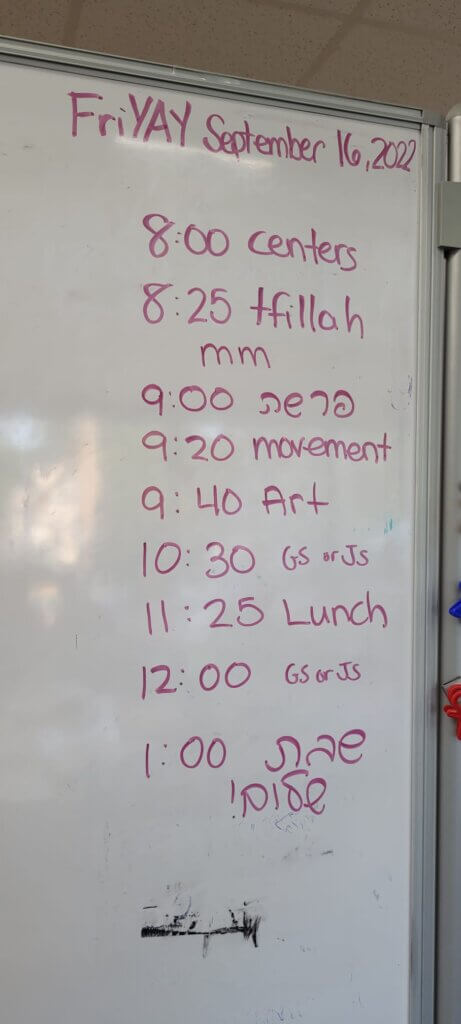 FriYAY September 16, 2022
8:00 centers
8:25 tfillah
mm
9:00 פרשת
9:20 movement
9:40 Art
10:30 GS or JS
11:25 Lunch
12:00 GS or JS
1:00 שבת
שלום!